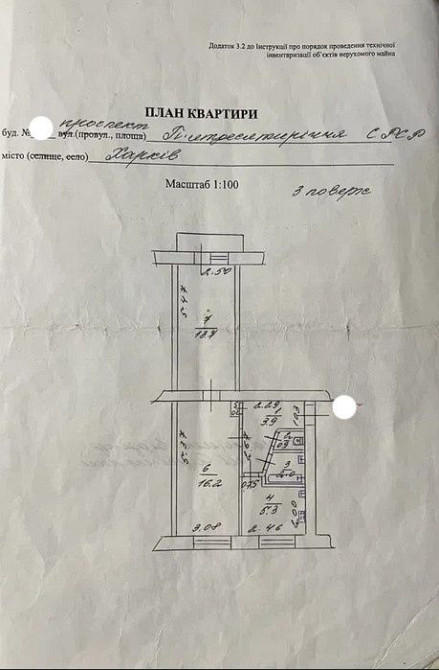 Додаток 3.2 до Інструкції про порядок проведення технічної
інвентаризації об'єктів нерухомого майна
ПЛАН КВАРТИРИ
проспект
буд. № вул.(провул., площа) П'ятдесятиріччя СРСР
місто (селище, село) Харків
Масштаб 1:100
3 поверх
2.50
7
2.29
1
3.9
2
3
6
16.2
0.75
4
5.3
2.00
3.08
2.46